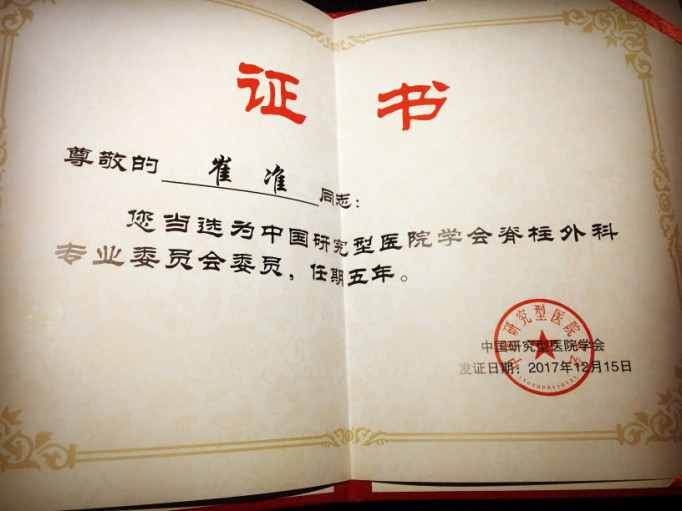 证书
尊敬的 崔准 同志：
您当选为中国研究型医院学会脊柱外科
专业委员会委员，任期五年。
中国研究型医院学会
中国研究型医院学会
发证日期：2017年12月15日